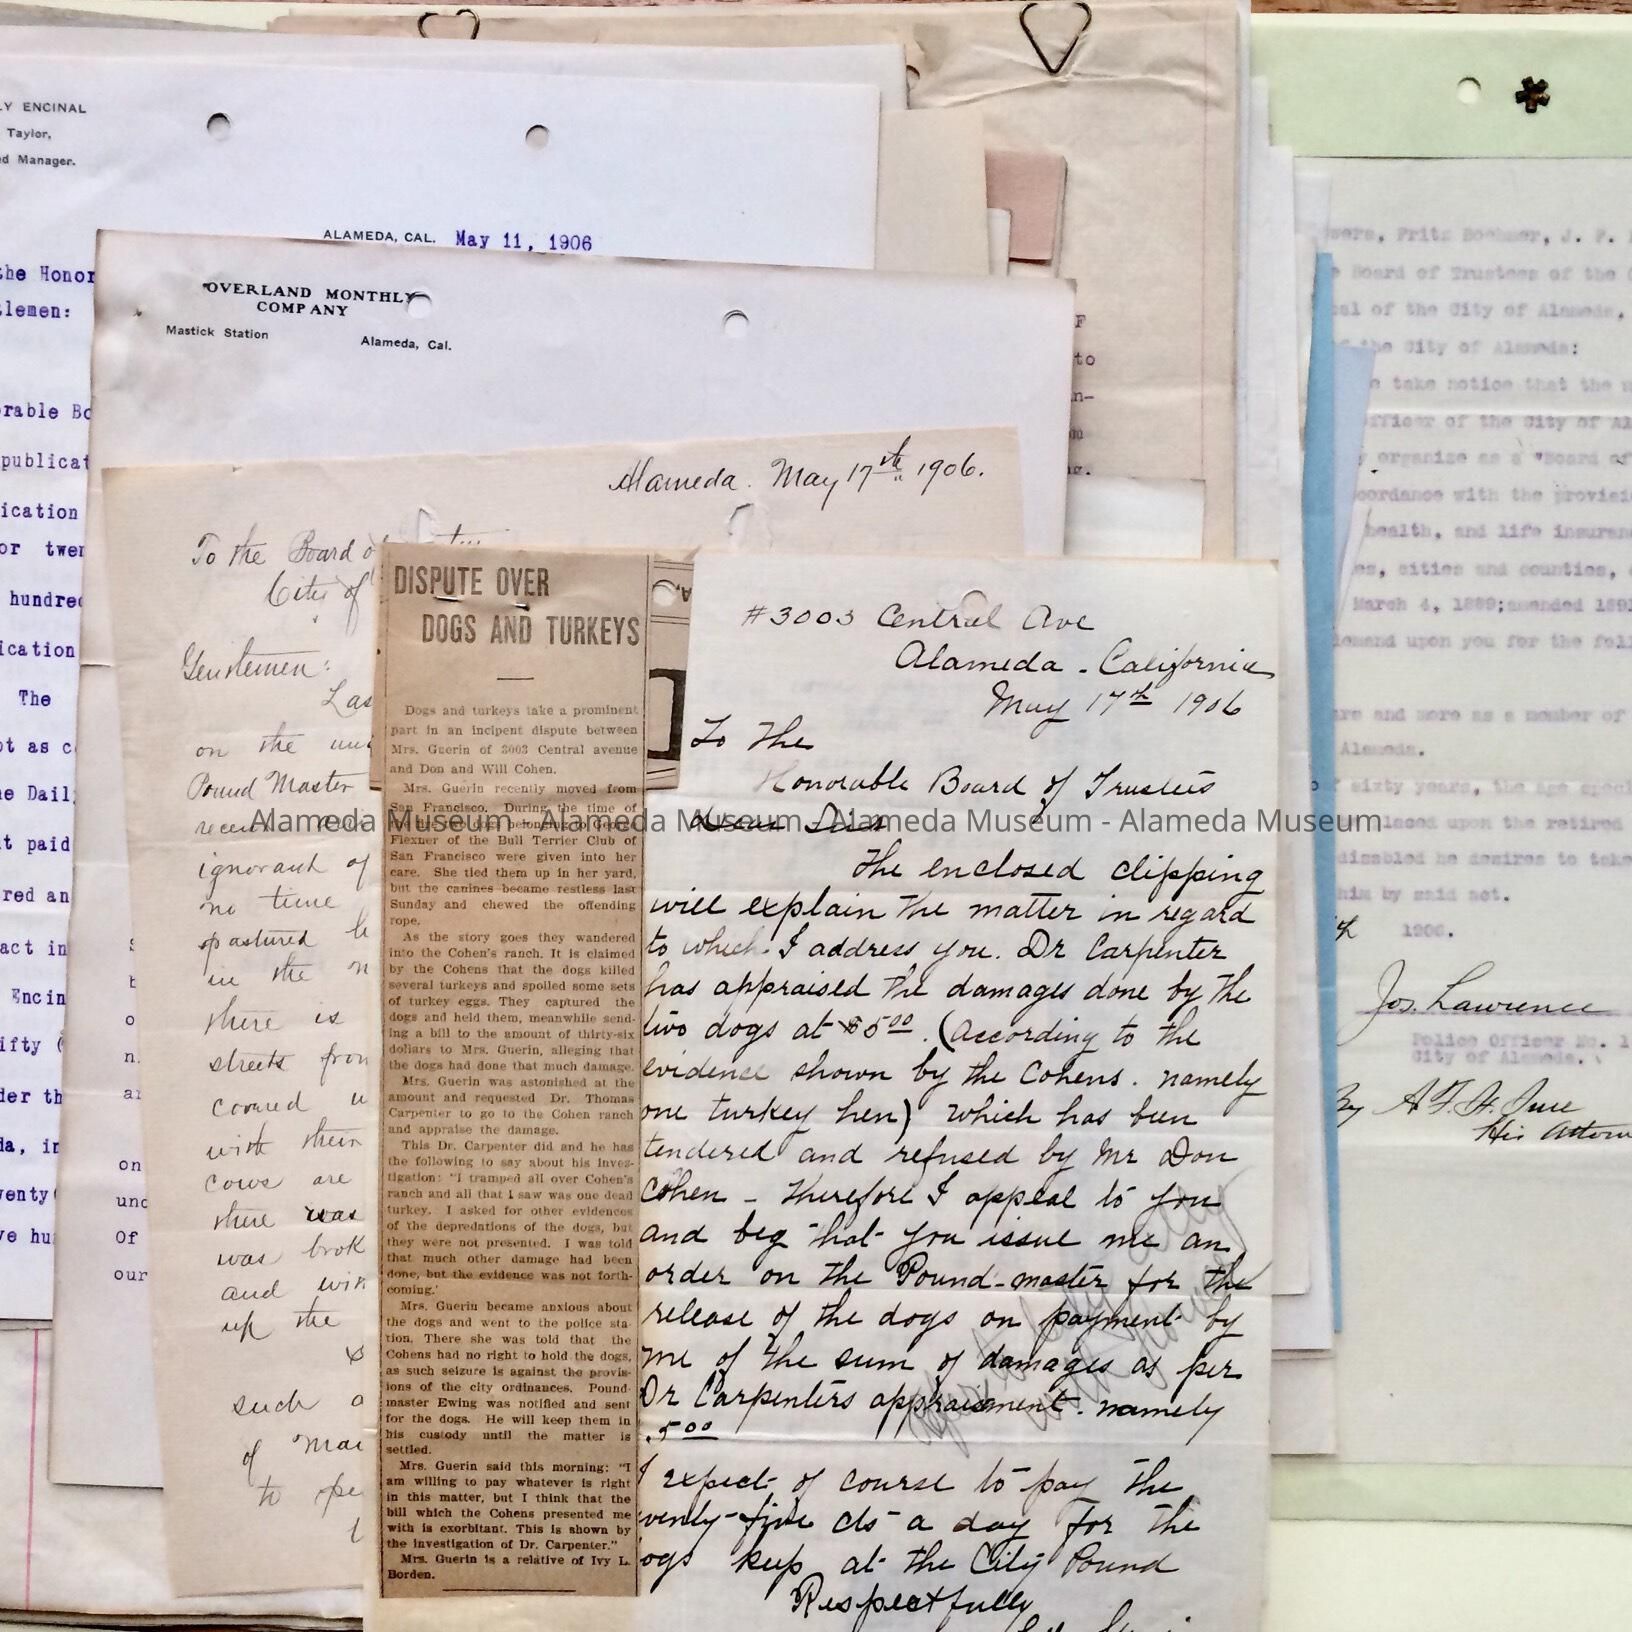 LY ENCINAL
Taylor,
ed Manager.
ALAMEDA, CAL. May 11, 1906
the Honor
tlemen:
orable Bo
publicat
ication
or twen
hundred
ication
The
ot as c
he Dail
t paid
red an
act in
Encin
ifty (
der th
da, in
wenty
ve hu
on
und
of
our
OVERLAND MONTHLY
COMPANY
Mastick Station Alameda, Cal.
Alameda. May 17th 1906.
To the Board of
City of
Gentlemen:
Las
on the
Pound Master
recent
ignorant of
no time
pastured
in the
there is
streets from
covered
with their
cows are
there was
was brok
and with
up the
such a
of
to
DISPUTE OVER
DOGS AND TURKEYS
Dogs and turkeys take a prominent
part in an incipent dispute between
Mrs. Guerin of 3003 Central avenue
and Don and Will Cohen.
Mrs. Guerin recently moved from
San Francisco. During the time of
the fire two dogs belonging to George
Flexner of the Bull Terrier Club of
San Francisco were given into her
care. She tied them up in her yard,
but the canines became restless last
Sunday and chewed the offending
rope.
As the story goes they wandered
into the Cohen's ranch. It is claimed
by the Cohens that the dogs killed
several turkeys and spoiled some sets
of turkey eggs. They captured the
dogs and held them, meanwhile send-
ing a bill to the amount of thirty-six
dollars to Mrs. Guerin, alleging that
the dogs had done that much damage.
Mrs. Guerin was astonished at the
amount and requested Dr. Thomas
Carpenter to go to the Cohen ranch
and appraise the damage.
This Dr. Carpenter did and he has
the following to say about his inves-
tigation: "I tramped all over Cohen's
ranch and all that I saw was one dead
turkey. I asked for other evidences
of the depredations of the dogs, but
they were not presented. I was told
that much other damage had been
done, but the evidence was not forth-
coming.'
Mrs. Guerin became anxious about
the dogs and went to the police sta-
tion. There she was told that the
Cohens had no right to hold the dogs,
as such seizure is against the provis-
ions of the city ordinances. Pound-
master Ewing was notified and sent
for the dogs. He will keep them in
his custody until the matter is
settled.
Mrs. Guerin said this morning: "I
am willing to pay whatever is right
in this matter, but I think that the
bill which the Cohens presented me
with is exorbitant. This is shown by
the investigation of Dr. Carpenter."
Mrs. Guerin is a relative of Ivy L.
Borden.
#3003 Central Ave
Alameda - California
May 17th 1906
To The
Honorable Board of Trustees
Dear Sirs
The enclosed clipping
will explain the matter in regard
to which I address you. Dr Carpenter
has appraised the damages done by the
two dogs at $5.00. (According to the
evidence shown by the Cohens. namely
one turkey hen) which has been
tendered and refused by Mr Don
Cohen - Therefore I appeal to you
and beg that you issue me an
order on the Pound-master for the
release of the dogs on payment by
me of the sum of damages as per
Dr Carpenters appraisment. namely
.5 00
I expect of course to pay the
wenty-five cts a day for the
ogs keep at the City Pound
Respectfully
to
n-
wers, Fritz Boehmer, J. F.
e Board of Trustees of the
of the City of Alameda,
of the City of Alameda:
e take notice that the
officer of the City of Al
y organize as a "Board of
ccordance with the provisi
health, and life insuran
es, cities and counties,
March 4, 1889;amended 1891
demand upon you for the foll
are and more as a member of
Alameda.
of sixty years, the age speci
laced upon the retired
disabled he desires to take
him by said act.
1906.
Jos. Lawrence
Police Officer No. 1
City of Alameda.
By
His Attorn
Alameda Museum - Alameda Museum - Alameda Museum - Alameda Museum